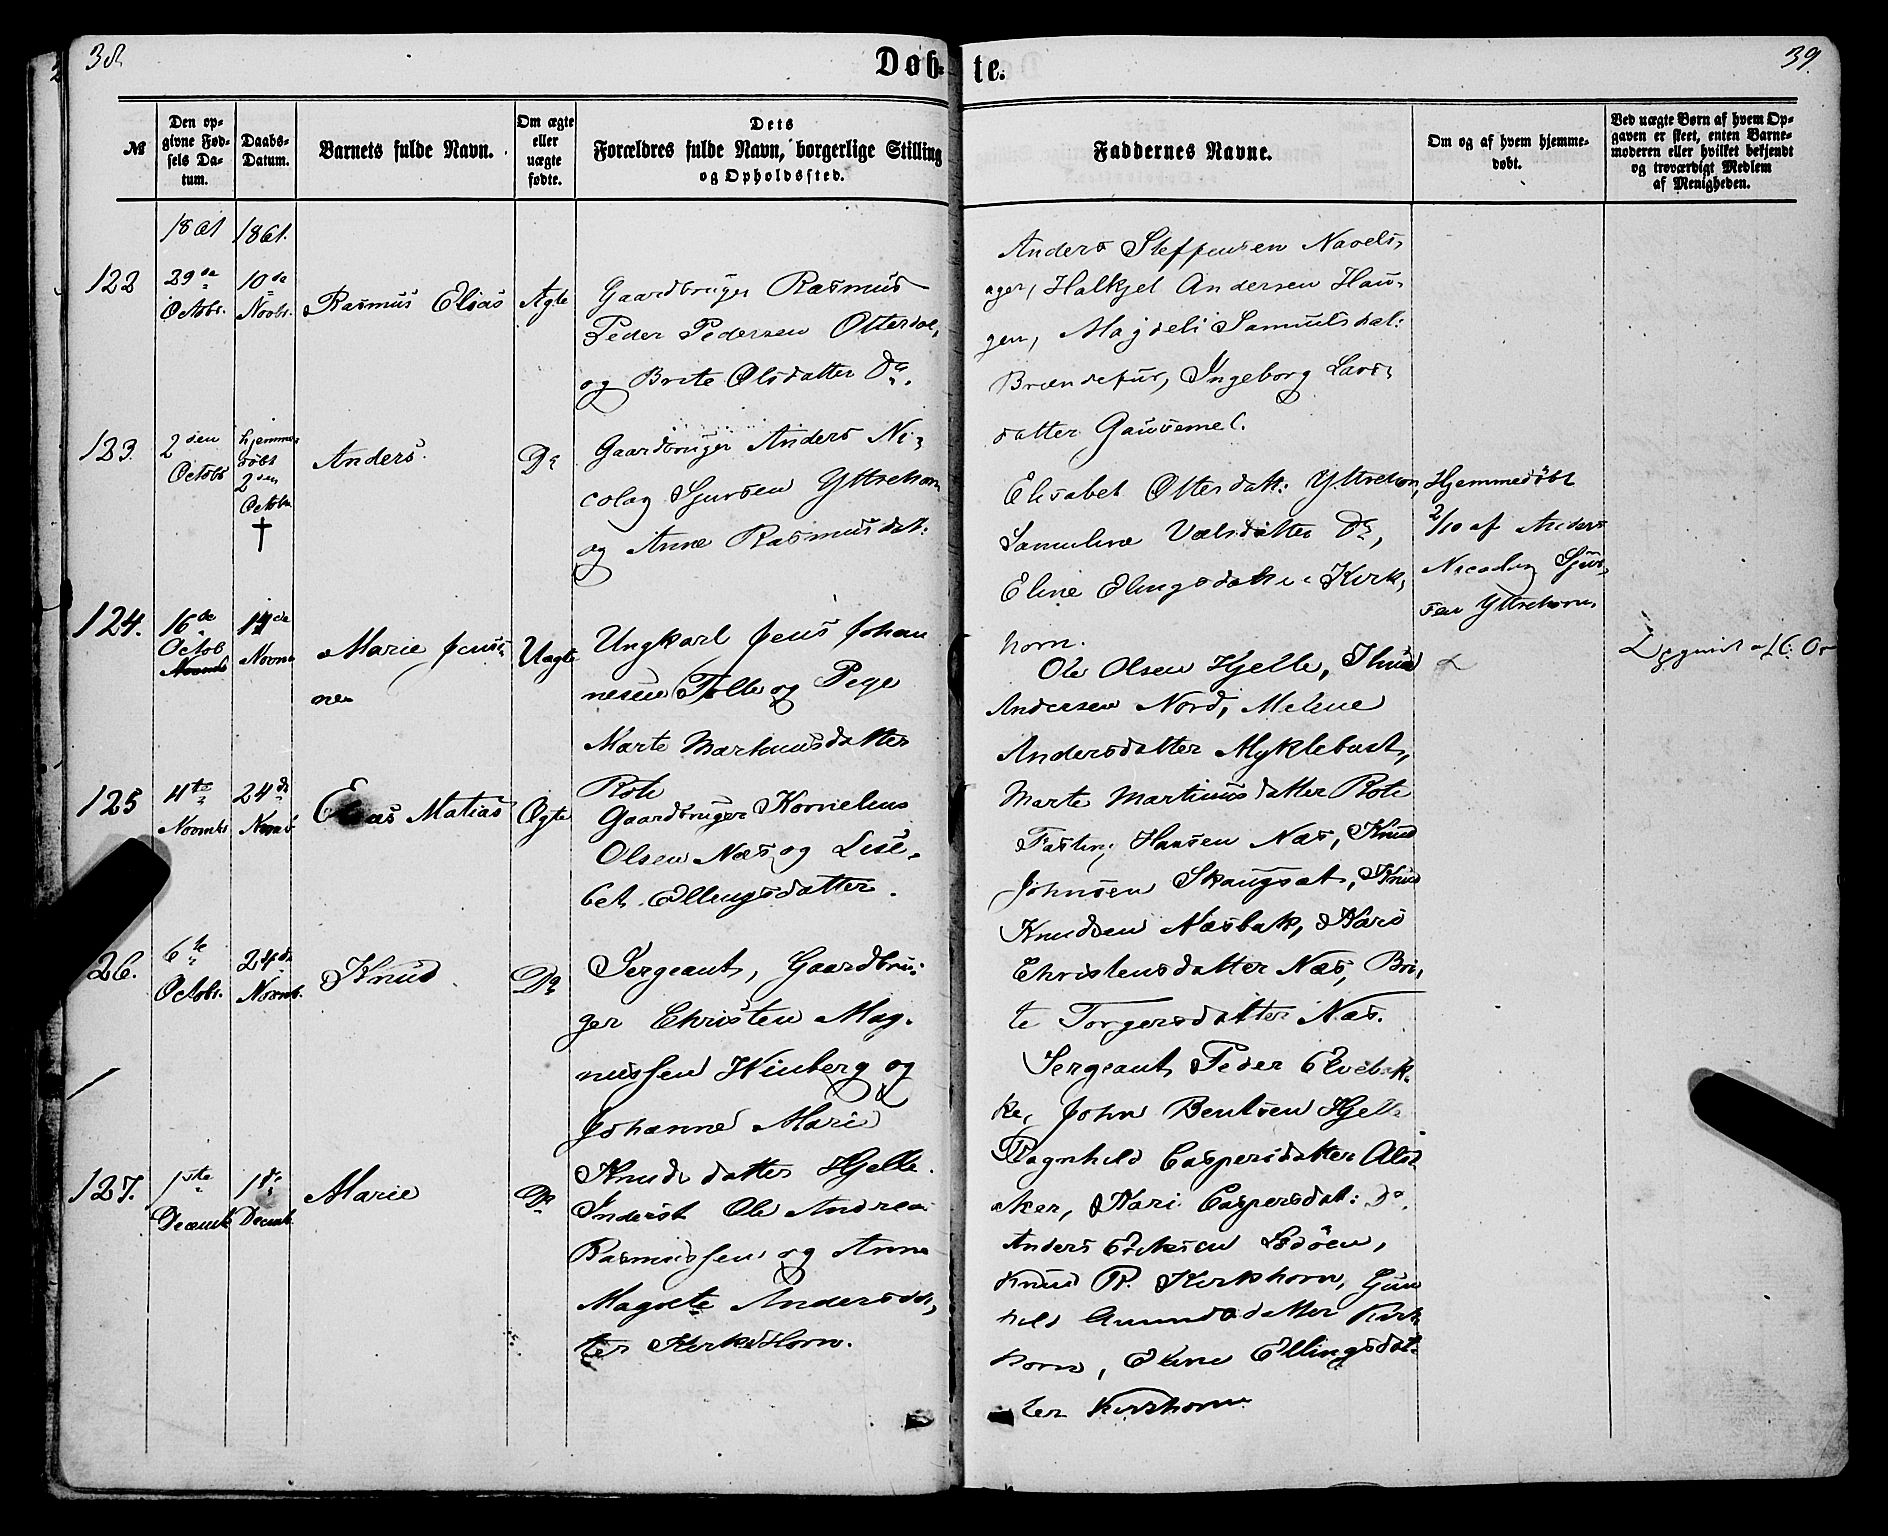 38
Døb-
te.
39
№
Den op-
givne Fød-
sels Da-
tum.
Daabs-
Datum.
Barnets fulde Navn.
Om ægte
eller
uægte
fødte.
Dets
Forældres fulde Navn, borgerlige Stilling
og Opholdssted.
Faddernes Navne.
Om og af hvem hjemme-
døbt.
Ved uægte Børn af hvem Op-
gaven er skeet, enten Barne-
moderen eller hvilket bekjendt
og troværdigt Medlem
af Menigheden.
1861
1861.
122
29de
Octobr.
10de
Novbr.
Rasmus Elias
Ægte
Gaardbruger Rasmus
Peder Pedersen Otterdal,
og Brite Olsdatter Do.
Anders Steffensen Navels,
ager, Halkjel Andersen Hau,
gen, Magdeli Samuelsdat:
Brændefur, Ingeborg Lars,
datter Gausemel.
123.
2den
Octobr
hjemme,
døbt
2den
Octobr
†
Anders.
Do
Gaardbruger Anders Ni,
colay Sjursen Yttrehorn
og Anne Rasmusdat:
Elisabet Ottersdatt: Yttrehorn,
Samuline Do,
Eline Elingsdatter Kirk,
horn.
Hjemmedöbt
2/10 af Anders
Nicolay Sjur,
sen Yttrehorn,
124.
16de
Octob
Novmb
de
Novmb
Marie Jensi-
ne
Uægte
Ungkarl Jens Johan
nesen Tolle og Pige
Marte Markusdatter
Rote
Ole Olsen Hjelle, Knud
Andersen Nord, Melene
Andersdatter Myklebust,
Marte Martinusdatter Rote
125
4te
Novmbr
24de
Novmb
Elias Matias
Ægte
Gaardbruger Kornelius
Olsen Næs og Lise,
bet Ellingsdatter.
Fasting Hansen Næs, Knud
Johnsen Skaugsæt, Knud
Knudsen Næsbak, Kari
Christensdatter Næs, Bri,
te Torgersdatter Næs.
26.
6te
Octobr.
24de
Novmb.
Knud
Do
Sergeant, Gaardbru-
ger Christen Mag-
nussen Winberg og
Johanne Marie
Knudsdatter Hjelle.
Sergeant Peder Ekvebak-
ke, John Bentsen Hjelle
Ragnhild Caspersdatter Als,
aker, Kari Caspersdat: Do.
127.
1ste
Decemb
1de
Decmb
Marie
Do
Inderst Ole Andreas
Rasmussen og Anne
Magrete Andersdat,
ter Kirkhorn.
Anders Eriksen Lødöen,
Knud R. Kirkhorn, Gun
hild Amundsdatter Kirk
horn, Eline Ellingsdat-
ter Kirkhorn